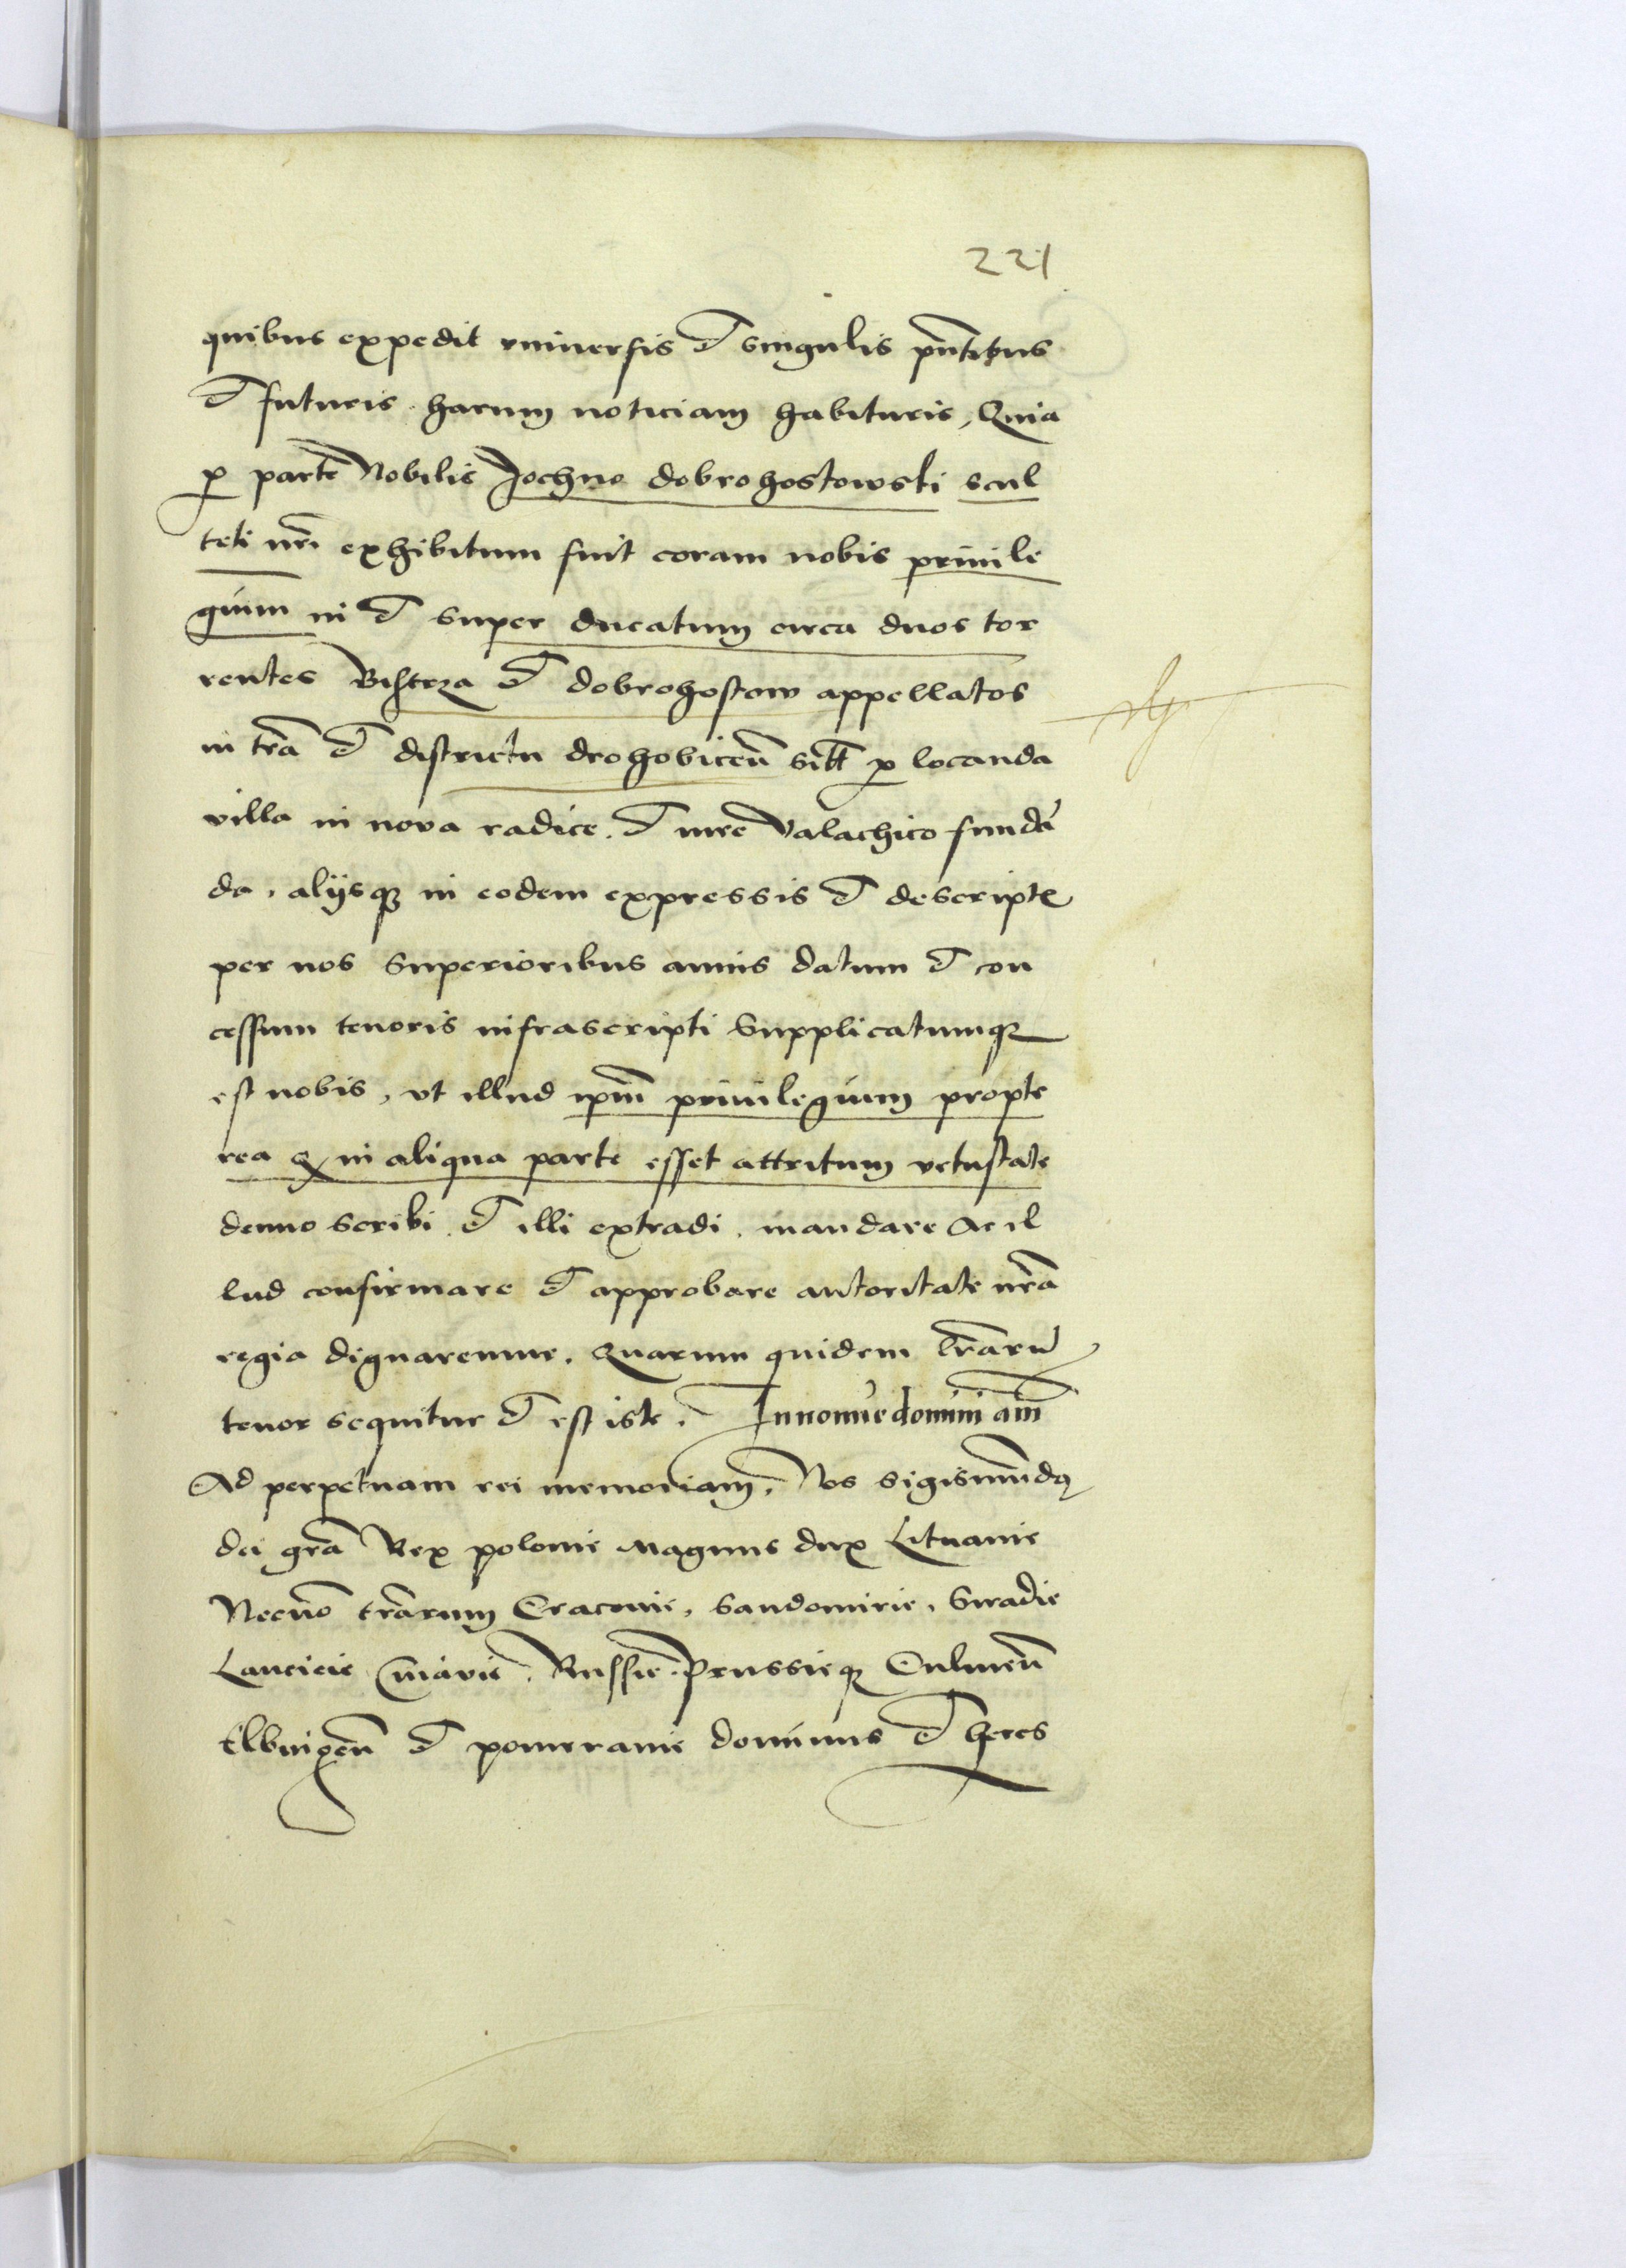 221
quibus expedit vniuersis et singulis pñtibus
et futuris harum noticiam habituris, Quia
p parte Nobilis Jochno dobrohostowski scul
teti nri exhibitum fuit coram nobis priuile
gium in et super ducatum circa duos tor
rentes Bistrza et dobrohostow appellatos
in tra et districtu drohobiceñ sitt p locanda
villa in nova radice. et iure Valachico fundã
da, alijsq in eodem expressis et descriptis
per nos superioribus annis datum et con
cessum tenoris infrascripti supplicatumq
est nobis, vt illud ipm priuilegium propte
rea q in aliqua parte esset attritum vetustate
denuo scribi et illi extradi. mandare Ac il
lud confirmare et approbare autoritate nra
regia dignaremur. Quarum quidem lrarũ
tenor sequitur et est iste. In nomie domini am
Ad perpetuam rei memoriam. Nos Sigismũdq
dei gra Rex polonie Magnus dux Lituanie
Necno trarum Cracouie, Sandomirie, Siradie
Lancicie Cuiavie. Russie Prussieq Culmeñ
Elbingeñ et pomeranie dominus et heres